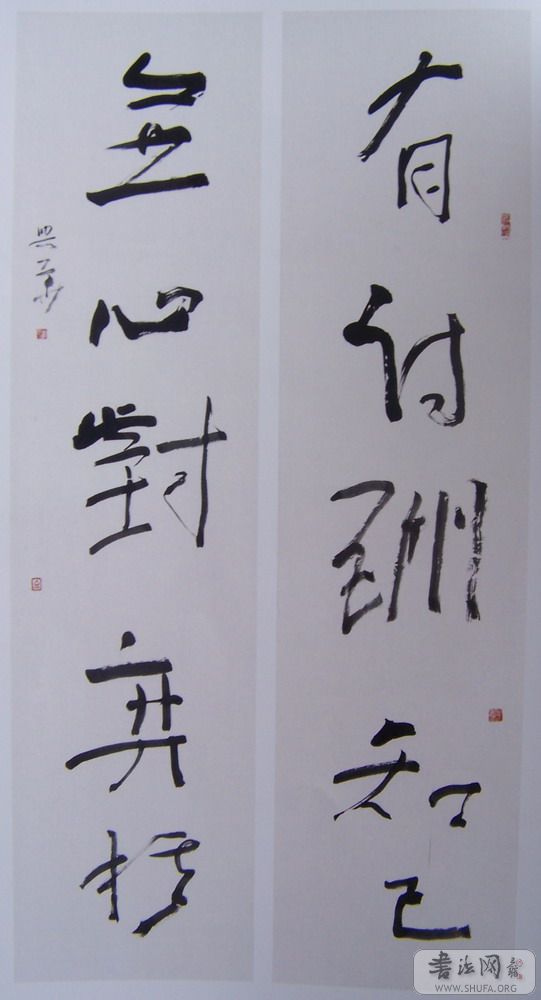 有詩酬知己
無心對弈棋
書法网
WWW.SHUFA.ORG